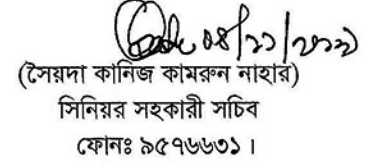 ০৪/১১/২০২১
(সৈয়দা কানিজ কামরুন নাহার)
সিনিয়র সহকারী সচিব
ফোনঃ ৯৫৭৬৬৩১ ।